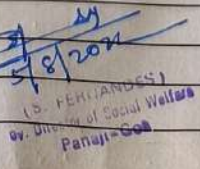 5/8/20
(S. FERNANDES)
Dy. Director of Social Welfare
Panaji-Goa